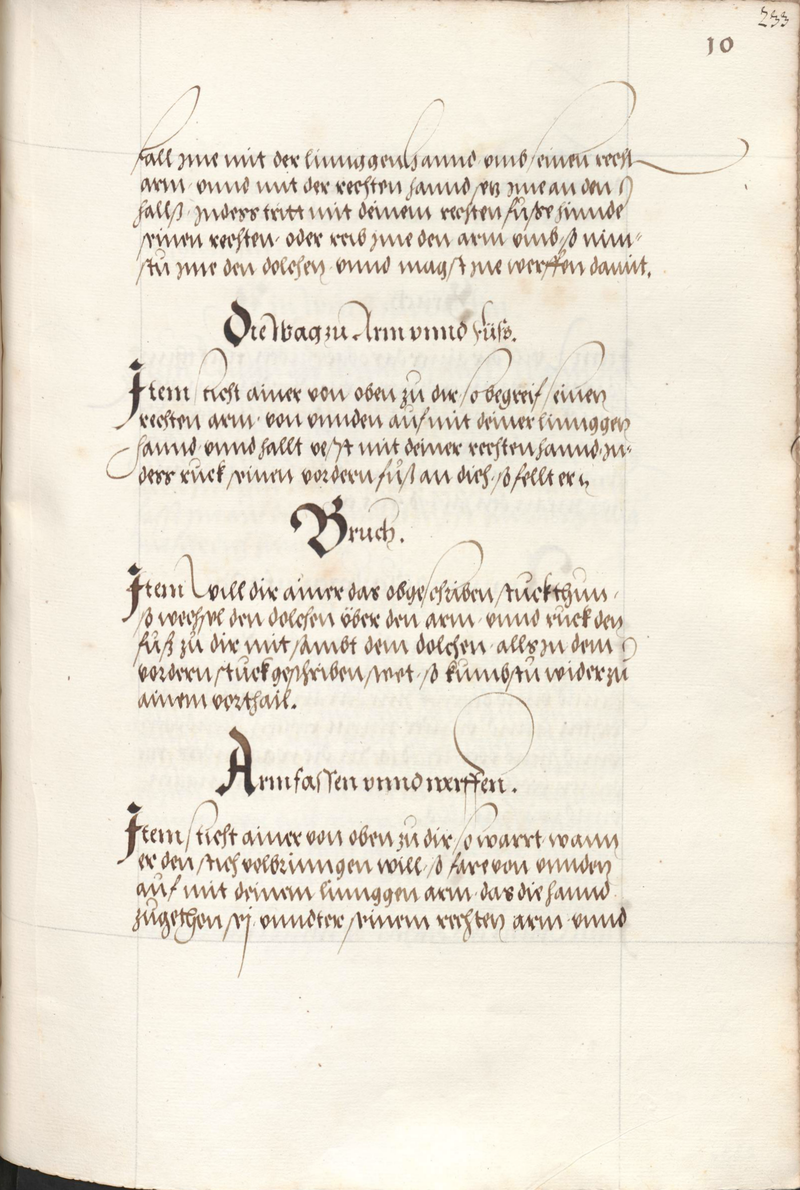 233
10
fall yme mit der linnggen hannd vmb seinen recht
arm· vnnd mit der rechten hannd setz yme an den
hallß· yndess tritt mit deinem rechten fuße hinnde
seinen rechten· oder reib yme den arm vmb· so nim-
stu yme den dolchen· vnnd magst yne werffen damit.
Die Wag zu Arm vnnd füß.
Item sticht ainer von oben zu dir so begreif seinen
rechten arm· von vnnden auf mit deiner linnggen
hannd· vnnd hallt vest mit deiner rechten hannd· yn-
dess ruck seinen vordern fuß an dich· so fellt er
Bruch.
Item Will dir ainer das obgeschriben stuckthun·
so wechsel den dolchen über den arm· vnnd ruck den
fuß zu dir mit sambt dem dolchen· alls yn dem
vordern stuck geschriben stet· so kumbstu wider zu
ainem vorthail.
Arm fassen vnnd werffen.
Item sticht ainer von oben zu dir so warrt wann
er den stich volbrinngen will· so fare von vnnden
auf mit deinem linnggen arm· das die hannd
zugethon sej· vnndter seinem rechten arm· vnnd